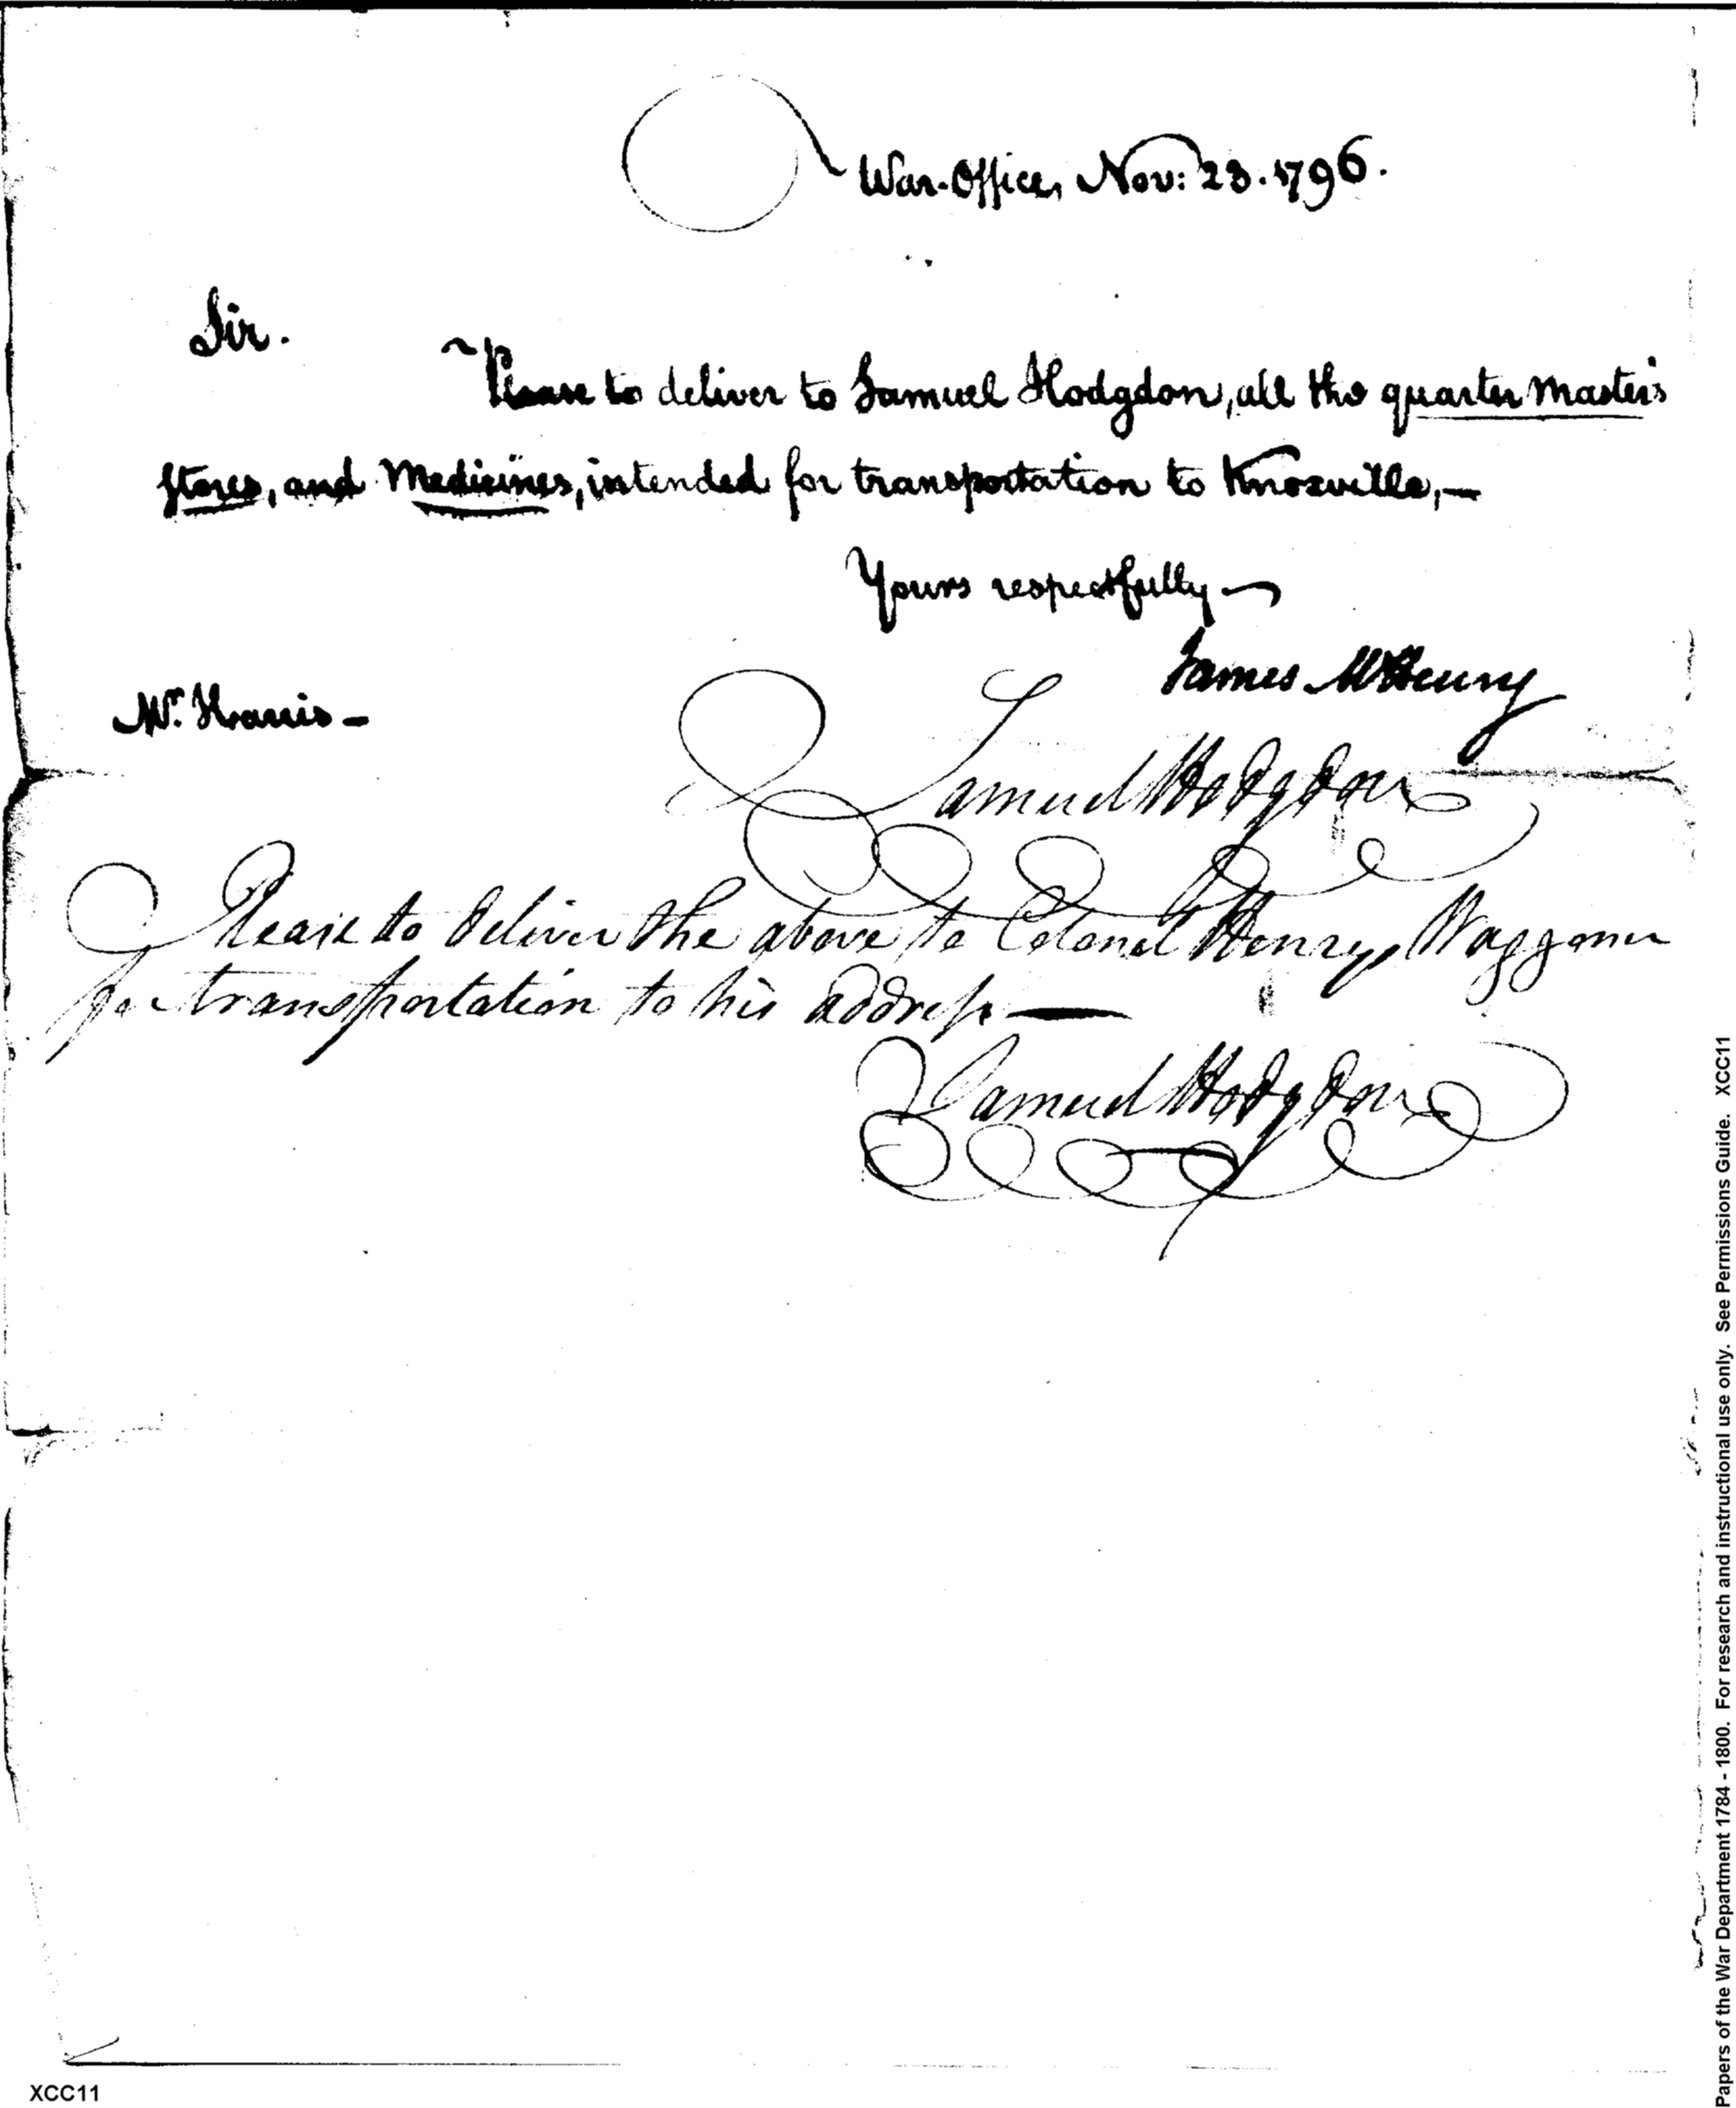 War-Office, Nov: 23. 1796.
Sir.
Please to deliver to Samuel Hodgdon, all the quarter Master's
stores, and Medicines, intended for transportation to Knoxville,—
Yours respectfully
James McHenry
Mr. Harris —
Samuel Hodgdon
Please to deliver the above to Colonel Henry, Waggoner
for transportation to his address —
Samuel Hodgdon
XCC11
Papers of the War Department 1784 - 1800. For research and instructional use only. See Permissions Guide. XCC11